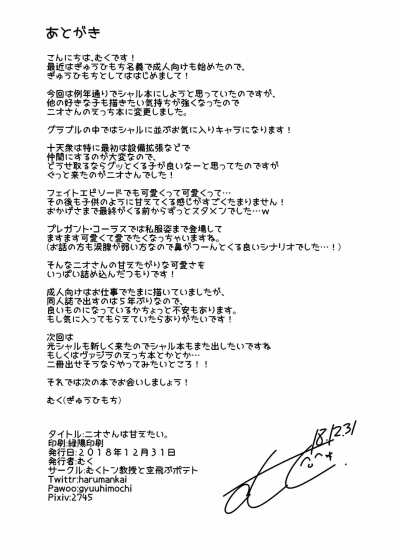 あとがき
こんにちは、むくです！
最近はぎゅうひもち名義で成人向けも始めたので、
ぎゅうひもちとしてははじめまして！
今回は例年通りでシャル本にしようと思っていたのですが、
他の好きな子も描きたい気持ちが強くなったので
ニオさんのえっち本に変更しました。
グラブルの中ではシャルに並ぶお気に入りキャラになります！
十天衆は特に最初は設備拡張などで
仲間にするのが大変なので、
どうせ取るならグッとくる子が良いなーと思ってたのですが
ぐっと来たのがニオさんでした！
フェイトエピソードでも可愛くって可愛くって…
その後も子供のように甘えてくる感じがすごくたまりません！
おかげさまで最終がくる前からずっとスタメンでした…w
プレザント・コーラスでは私服姿まで登場して
ますます可愛くて愛でたくなっちゃいますね。
(お話の方も涙腺が弱い方なので鼻がつーんとくる良いシナリオでした…！)
そんなニオさんの甘えたがりな可愛さを
いっぱい詰め込んだつもりです！
成人向けはお仕事でたまに描いていましたが、
同人誌で出すのは5年ぶりなので、
良いものになっているかちょっと不安もあります。
もし気に入ってもらえていたらありがたいです！
次回は
光シャルも新しく来たのでシャル本もまた出したいですね
もしくはヴァジラのえっち本とかとか…
二冊出せそうならやってみたいところ！！
それでは次の本でお会いしましょう！
むく(ぎゅうひもち)
タイトル:ニオさんは甘えたい。
印刷:緑陽印刷
発行日:2018年12月31日
発行者:むく
サークル:むくトン教授と空飛ぶポテト
Twittr:harumankai
Pawoo:gyuuhimochi
Pixiv:2745
18.12.31